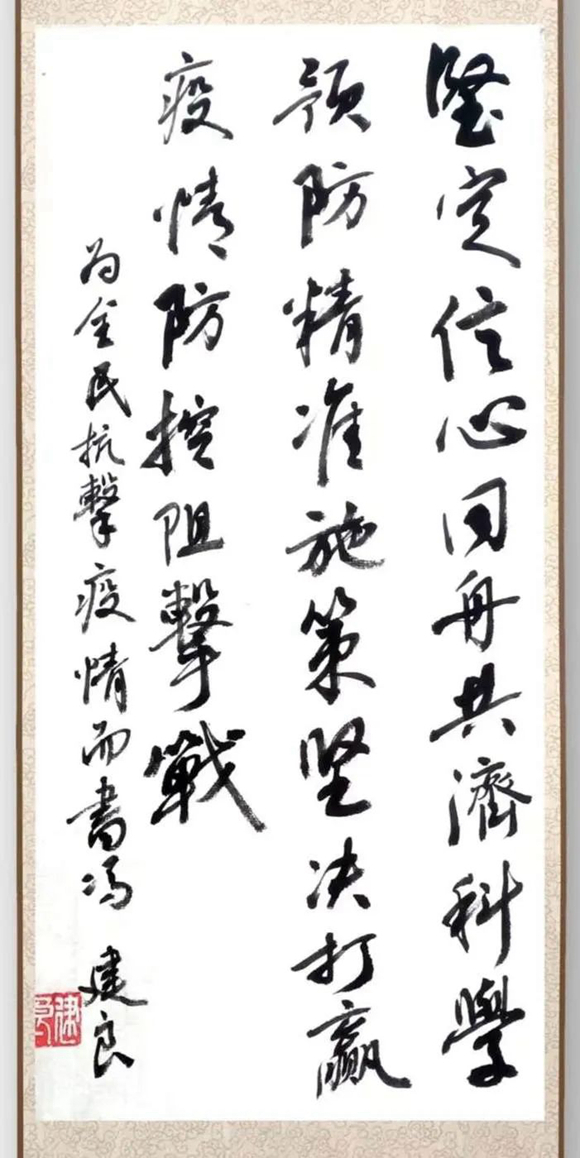 堅定信心同舟共濟科學
预防精准施策坚决打赢
疫情防控阻擊戰
为全民抗擊疫情而書冯建良
建良